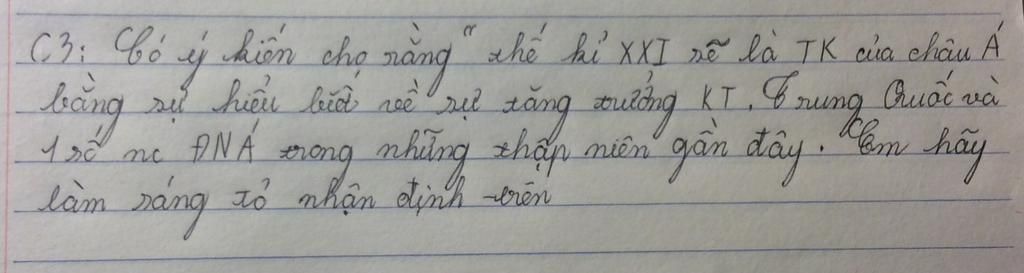 C3: Có ý kiến cho rằng " thế kỉ XXI sẽ là TK của châu Á
bằng sự hiểu biết về sự tăng trưởng KT, Trung Quốc và
1 số nc ĐNÁ trong những thập niên gần đây. Em hãy
làm sáng tỏ nhận định trên